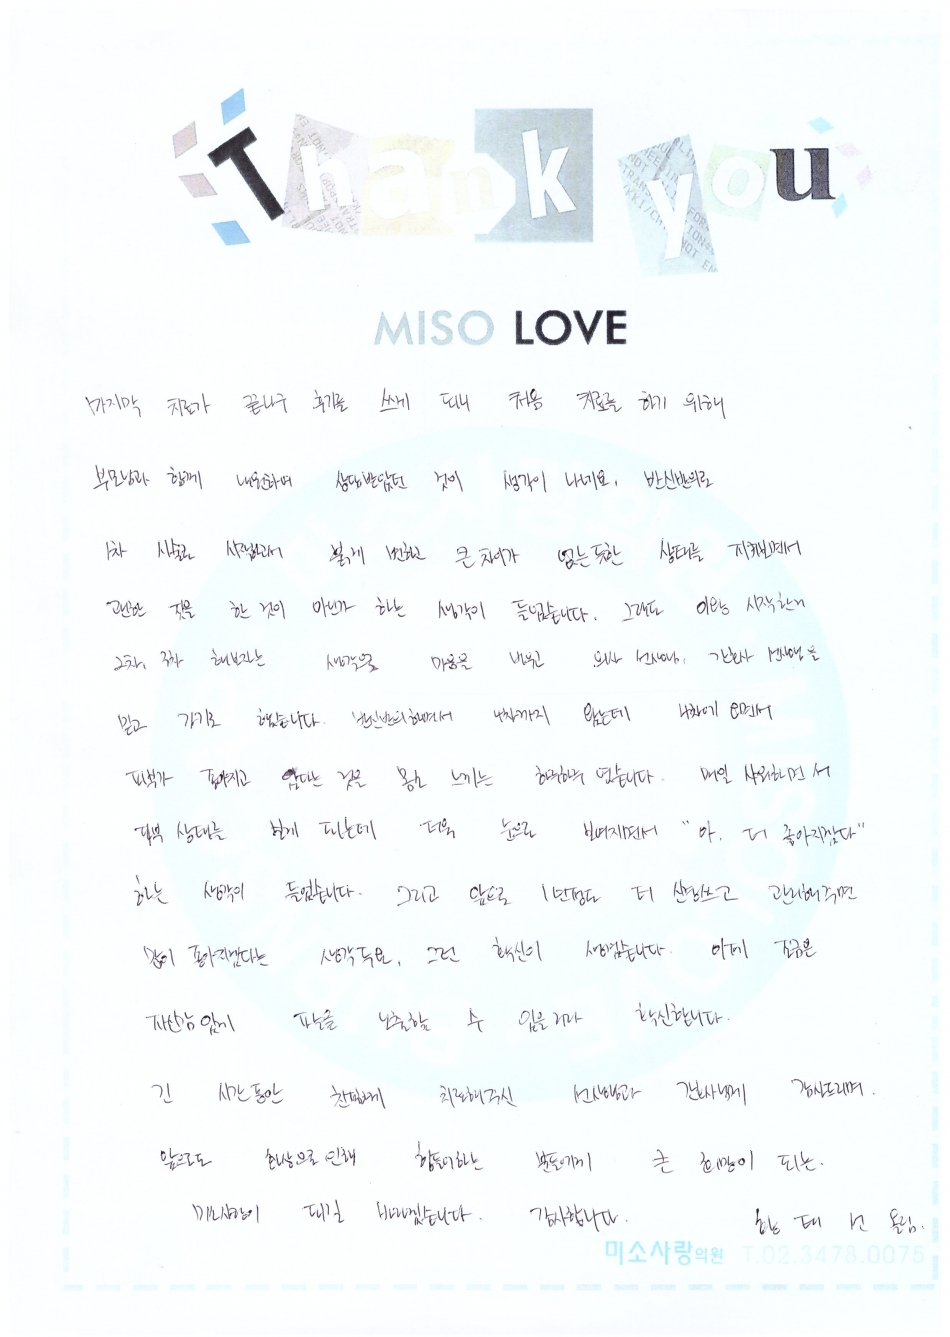 Thank you
MISO LOVE
마지막 치료가 끝나구 후기를 쓰게 되니 처음 치료를 하기 위해
부모님과 함께 내원하여 상담받았던 것이 생각이 나네요. 반신반의로
1차 시술로 시작하고서 붉게 변하고 큰 차이가 없는듯한 상태를 지켜보면서
괜한 짓을 한 것이 아닌가 하는 생각이 들었습니다. 그래도 이왕 시작한거
2차, 3차 해보자는 생각으로 마음을 비우고 의사 선생님, 간호사 선생님을
믿고 가기로 했습니다. 반신반의하면서 4차까지 왔는데 4차에 오면서
피부가 좋아지고 있다는 것을 몸으로 느끼는 했습니다. 매일 샤워하면서
피부 상태를 보게 되는데 더욱 눈으로 보여지면서 "아. 더 좋아지겠다"
하는 생각이 들었습니다. 그리고 앞으로 1년정도 더 신경쓰고 관리해주면
많이 좋아지겠다는 생각두요, 그런 확신이 생겼습니다. 이제 조금은
자신감있게 노출할 수 있을거라 확신합니다.
긴 시간동안 친절하게 치료해주신 선생님과 간호사님께 감사드리며.
앞으로도 화상으로 인해 힘들어하는 분들에게 큰 희망이 되는.
미소사랑이 되길 바라겠습니다. 감사합니다. 올림.
미소사랑의원 T.02.3478.0075